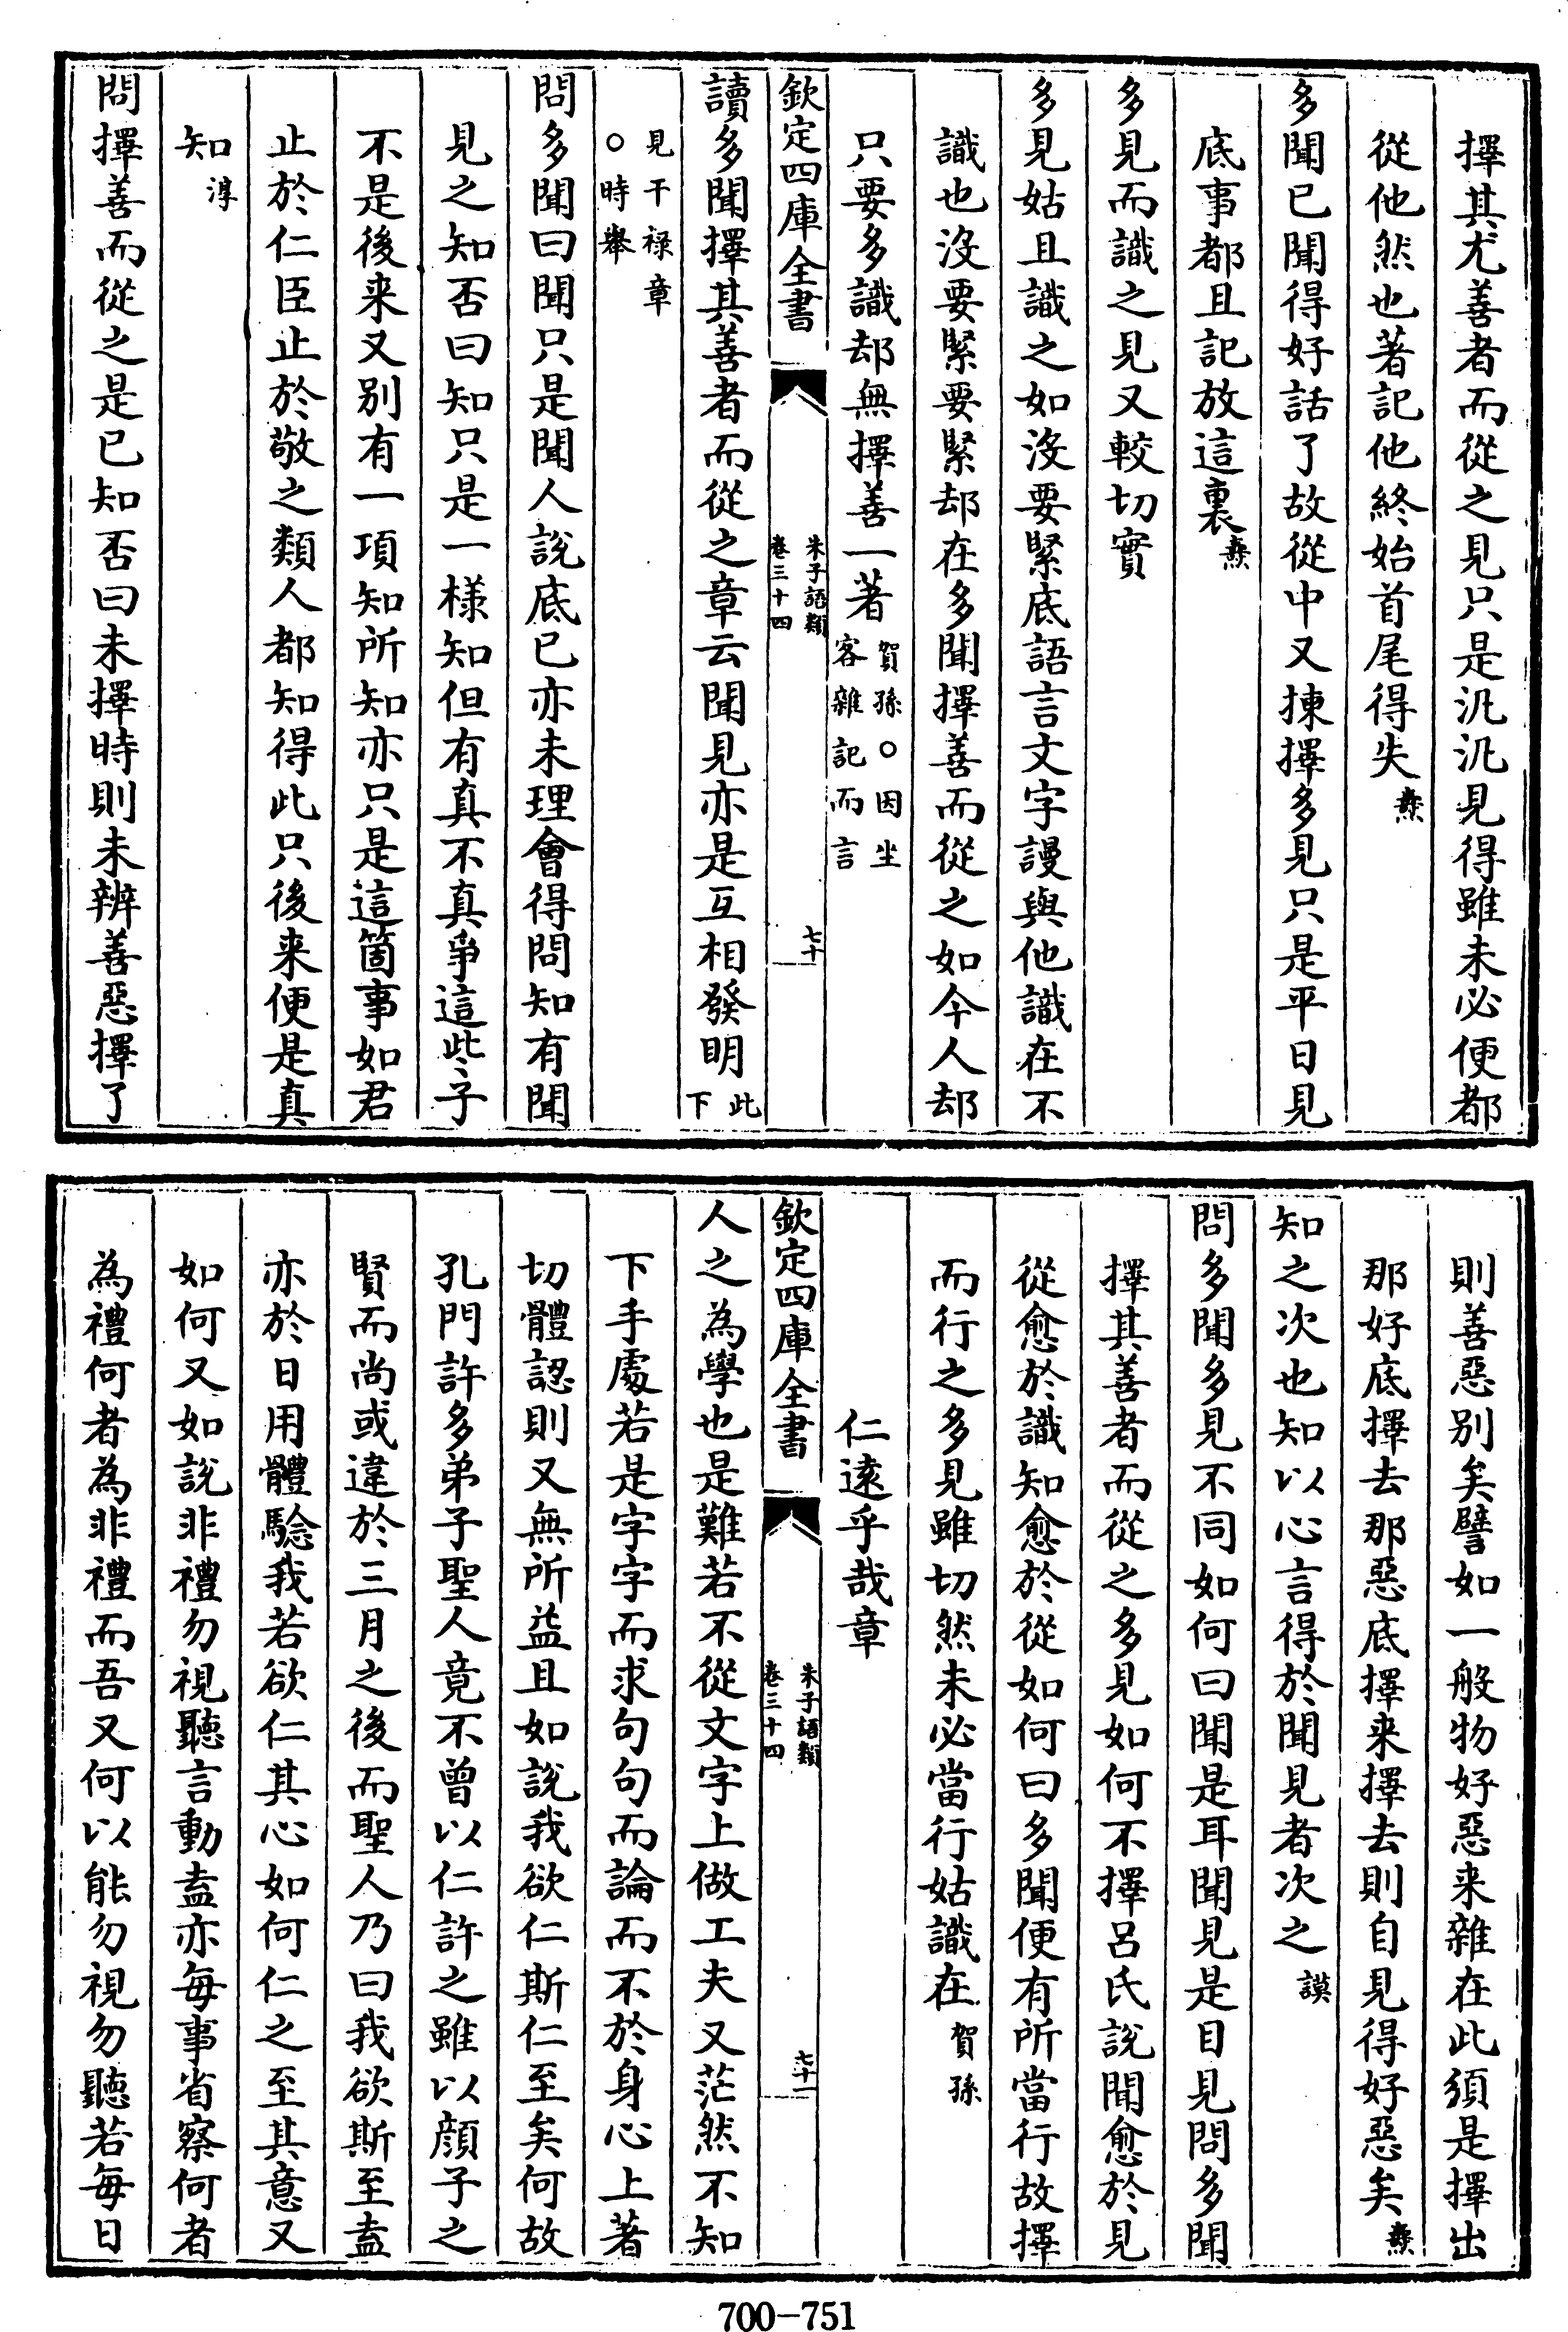 擇其尤善者而從之見只是汎汎見得雖未必便都
從他然也著記他終始首尾得失 㷼
多聞已聞得好話了故從中又揀擇多見只是平日見
底事都且記放這裏 㷼
多見而識之見又較切實
多見姑且識之如沒要緊底語言文字謾與他識在不
識也沒要緊要緊却在多聞擇善而從之如今人却
只要多識却無擇善一著 賀孫○因坐
客雜記而言
欽定四庫全書
朱子語類
卷三十四
七十
讀多聞擇其善者而從之章云聞見亦是互相發明 此
下
見干祿章
○時舉
問多聞曰聞只是聞人說底已亦未理會得問知有聞
見之知否曰知只是一樣知但有真不真爭這些子
不是後来又別有一項知所知亦只是這箇事如君
止於仁臣止於敬之類人都知得此只後来便是真
知 淳
問擇善而從之是已知否曰未擇時則未辨善惡擇了
則善惡别矣譬如一般物好惡来雜在此須是擇出
那好底擇去那惡底擇来擇去則自見得好惡矣 㷼
知之次也知以心言得於聞見者次之 謨
問多聞多見不同如何曰聞是耳聞見是目見問多聞
擇其善者而從之多見如何不擇呂氏說聞愈於見
從愈於識知愈於從如何曰多聞便有所當行故擇
而行之多見雖切然未必當行姑識在 賀孫
仁遠乎哉章
欽定四庫全書
朱子語類
卷三十四
七十一
人之為學也是難若不從文字上做工夫又茫然不知
下手處若是字字而求句句而論而不於身心上著
切體認則又無所益且如說我欲仁斯仁至矣何故
孔門許多弟子聖人竟不曾以仁許之雖以顔子之
賢而尚或違於三月之後而聖人乃曰我欲斯至盍
亦於日用體驗我若欲仁其心如何仁之至其意又
如何又如說非禮勿視聽言動盍亦每事省察何者
為禮何者為非禮而吾又何以能勿視勿聽若每日
700-751